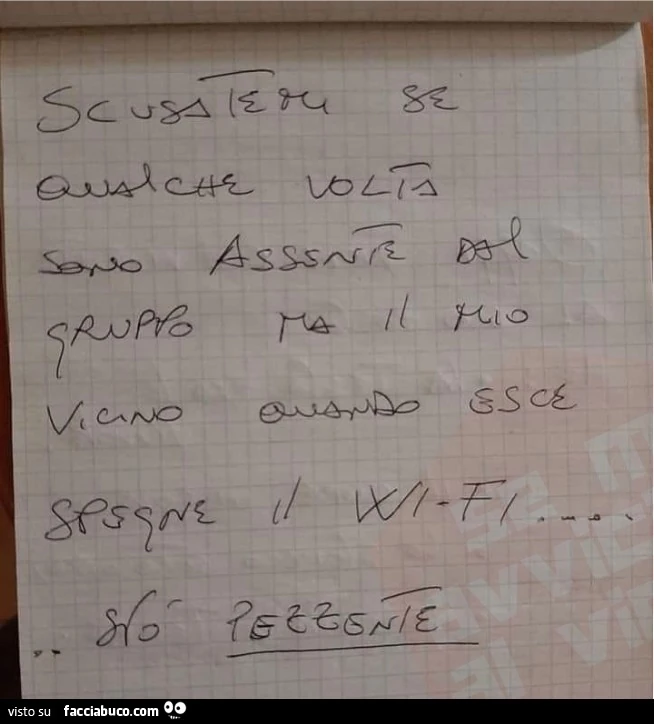 SCUSATEMI SE
QUALCHE VOLTA
SONO ASSENTE DAL
GRUPPO MA IL MIO
VICINO QUANDO ESCE
SPEGNE IL WI-FI.....
.. STO PEZZENTE
visto su facciabuco.com